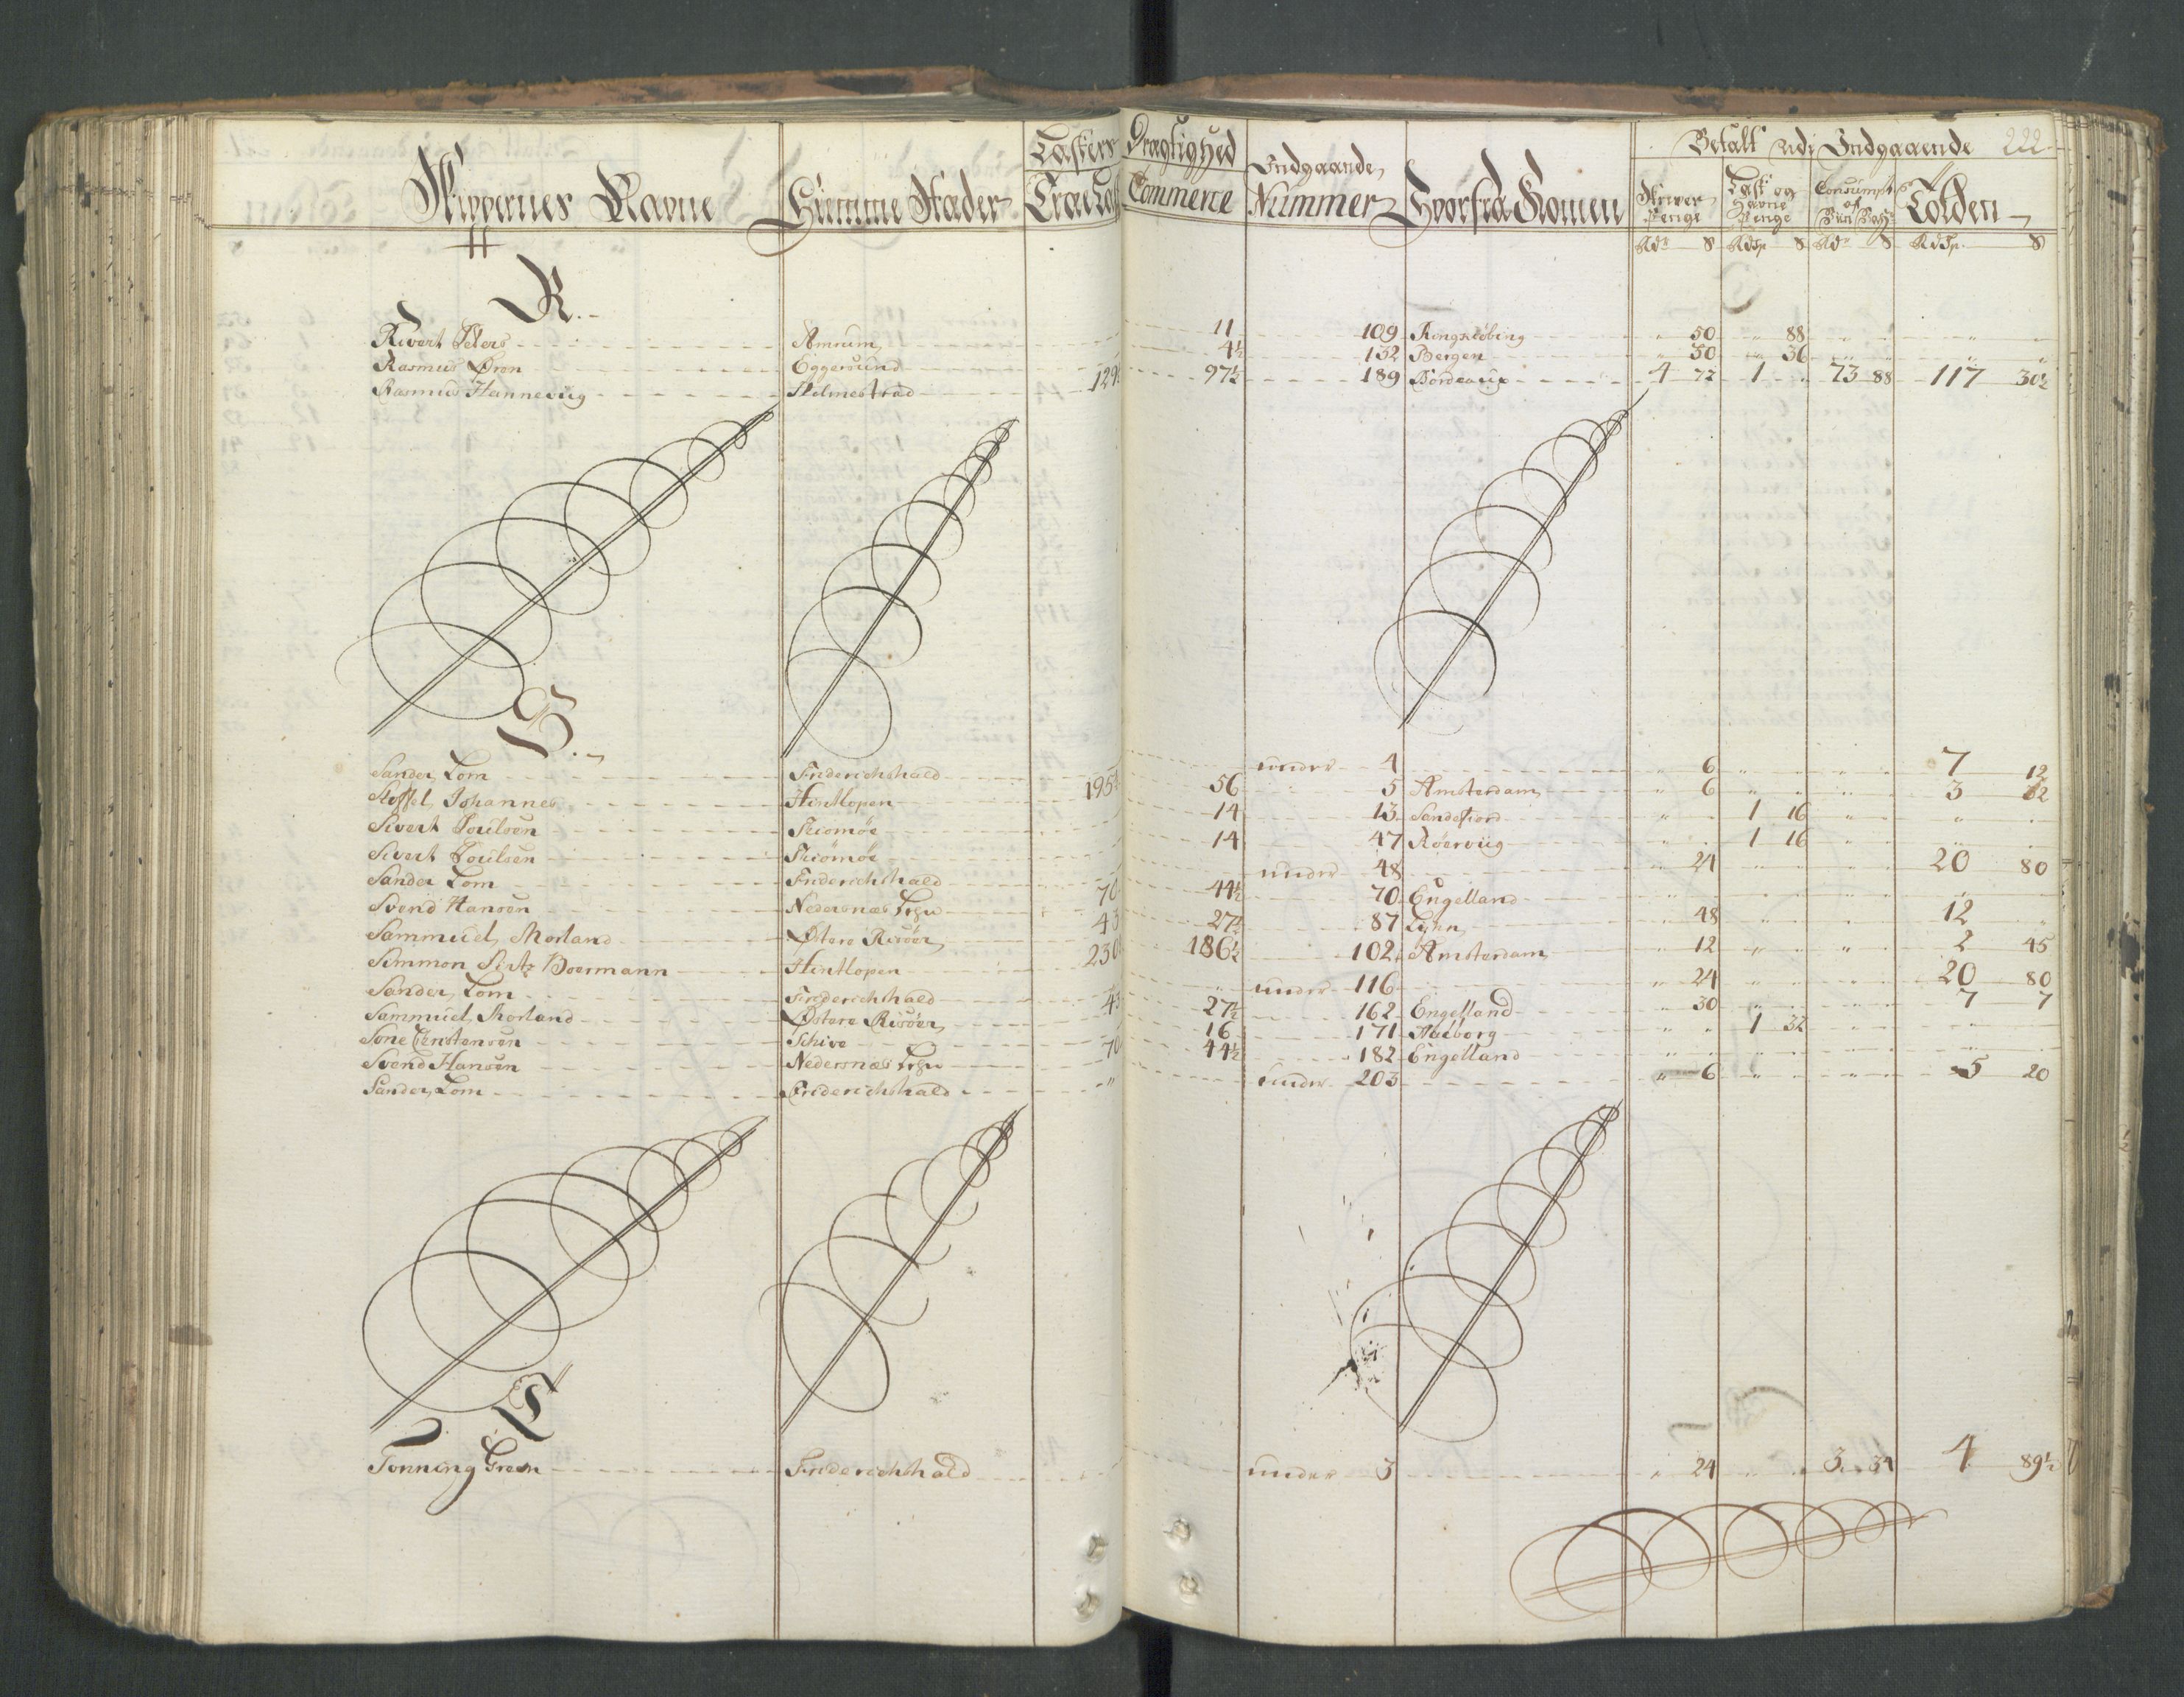 Skippernes Navne Hiemme Stæder Læsters Drægtighed Indgaaende Nummer Hvorfra Komen Betalt udi Indgaaende 222
Træ Læst Commerce Skriver Penge Læst og Havne Penge Consumpt: af Tolden
Rdr ß Rdsp ß Rdr ß Rdsp. ß
R.
Rivert Peters Amrum 11 109 Ringkiøbing " 50 " 88
Rasmus Øren Eggersund 4½ 132 Bergen " 50 " 36
Rasmus Hannevig Holmestrad 129 97½ 189 Bordeaux 4 72 1 73 88 117 30½
S.
Sander Lom Friderichshald under 4 " 6 7 12
Stoffel Johannes Hintlopen 195 56 5 Amsterdam " 6 3 82
Sivert Poulsen Skiomöe 14 13 Sandefiord 1 16
Sivert Poulsen Skiömöe 14 47 Röerviig 1 16
Sander Lom Friderichshald under 48 " 24 20 80
Svend Hansen Nedersnæs 70 44½ 70 Engelland
Sammuel Morland Østere Risöer 43 27½ 87 Lynn " 48 12 "
Simmon Boermann Hintlopen 230 186½ 102 Amsterdam " 12 2 45
Sander Lom Friderichshald under 116 " 24 20 80
Sammuel Morland Østere Risöer 43 27½ 162 Engelland " 30 7 7
Sone Christensen Schive 16 171 Aalborg 1 32
Svend Hansen Nedersnæs 70 44½ 182 Engelland
Sander Lom Friderichshald under 203 " 6 5 20
T
Tønning Green Friderichshald under 3 " 24 3 34 4 89½